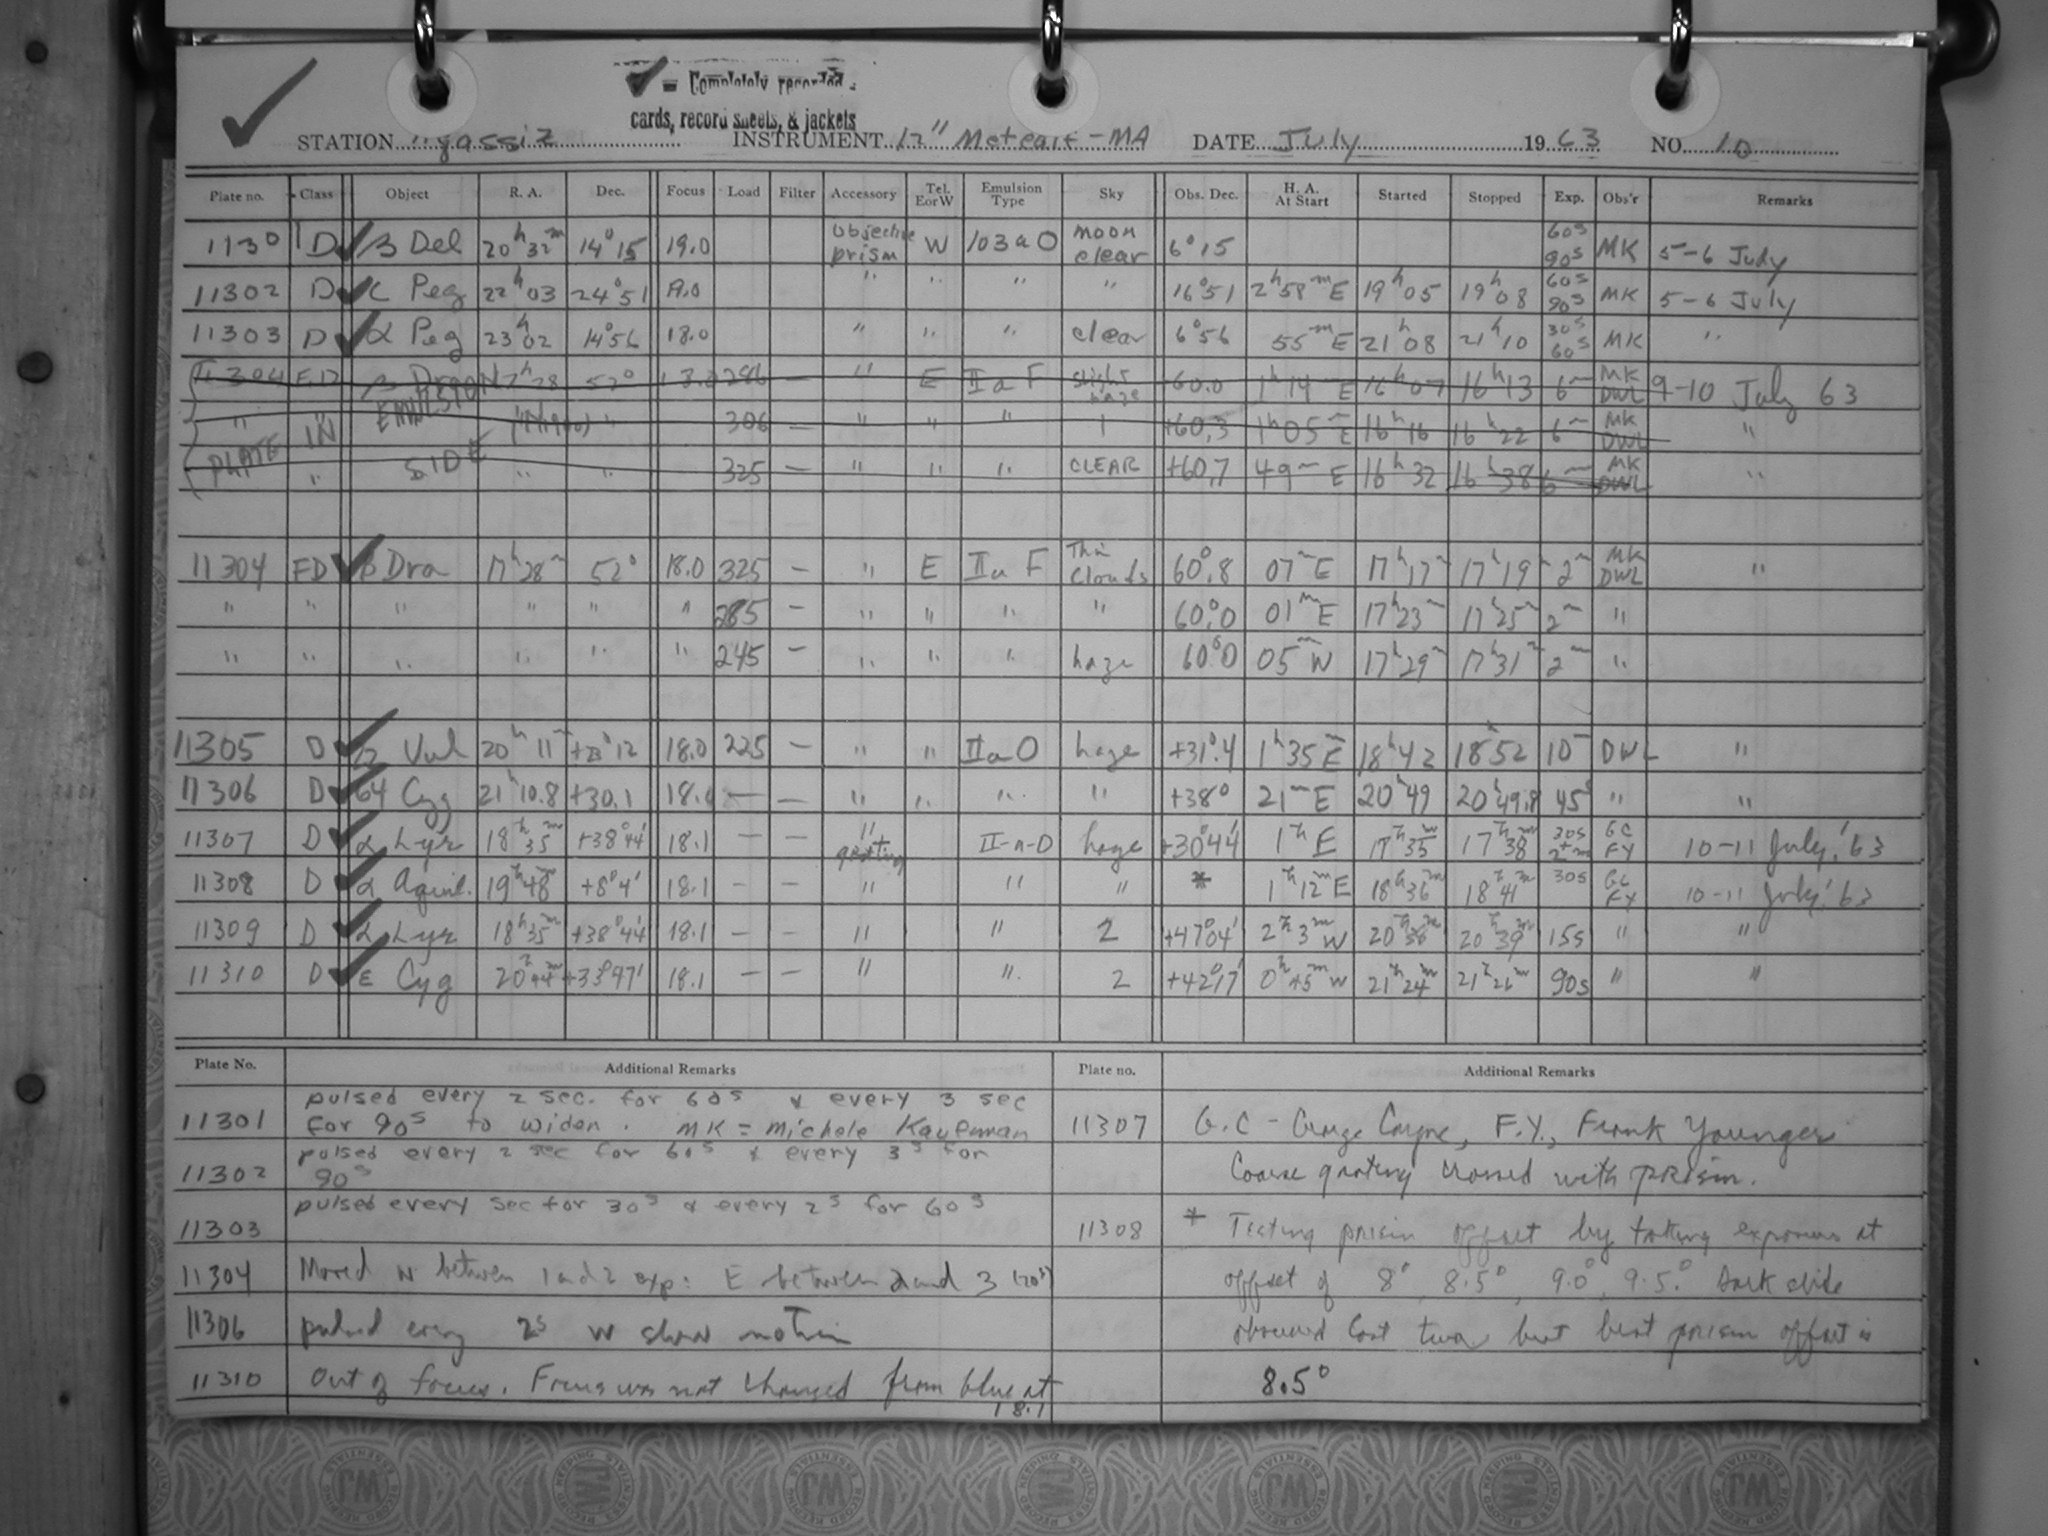 ✓ = Completely recorded.
cards, record sheets, & jackets
STATION Agassiz INSTRUMENT 12" Metcalf-MA DATE July 1963 NO. 10
Plate no. Class Object R. A. Dec. Focus Load Filter Accessory Tel. E or W Emulsion Type Sky Obs. Dec. H. A. At Start Started Stopped Exp. Obs'r Remarks
11301 D ✓ β Del 20h 32m 14°15 19.0 Objective prism W 103aO moon clear 6°15 60s 90s MK 5-6 July
11302 D ✓ ι Peg 22h 03 24°51 19.0 " " " " 16°51 2h 58m E 19h 05 19h 08 60s 90s MK 5-6 July
11303 D ✓ α Peg 23h 02 14°56 18.0 " " " clear 6°56 55m E 21h 08 21h 10 30s 60s MK "
11304 β Dra 17h 28 52° 286 — " E IIaF slight haze +60.0 1h 14m E 16h 07 16h 13 6m MK DWL 9-10 July 63
" " " 306 — " " " +60.3 1h 05m E 16h 16 16h 22 6m MK DWL "
" " " 325 — " " " CLEAR +60.7 49m E 16h 32 16h 38 6m MK DWL "
PLATE IN EMULSION SIDE
11304 FD ✓ β Dra 17h 28m 52° 18.0 325 — " E IIaF Thin Clouds 60°.8 07m E 17h 17m 17h 19m 2m MK DWL "
" " " " " " 285 — " " " " 60°.0 01m E 17h 23m 17h 25m 2m "
" " " " " " 245 — " " " haze 60°.0 05m W 17h 29m 17h 31m 2m "
11305 D ✓ Vul 20h 11m 18.0 225 — " " IIaO haze +31°.4 1h 35m E 18h 42 18h 52 10m DWL "
11306 D ✓ 64 Cyg 21h 10.8 +30.1 18.0 — — " " " " +38° 21m E 20h 49 20h 49.8 45s " "
11307 D ✓ α Lyr 18h 35m +38°44' 18.1 — — " grating II-a-O haze +30°44' 1h E 17h 35m 17h 38m 30s 2m GC FY 10-11 July, '63
11308 D ✓ α Aquil. 19h 48m +8°4' 18.1 — — " " " * 1h 12m E 18h 36m 18h 41m 30s GC FY 10-11 July, '63
11309 D ✓ α Lyr 18h 35m +38°44' 18.1 — — " " 2 +47°04' 2h 3m W 20h 20h 39m 15s " "
11310 D ✓ ε Cyg 20h 44m +33°47' 18.1 — — " " 2 +42°17' 0h 45m W 21h 24m 21h 26m 90s " "
Plate No. Additional Remarks Plate no. Additional Remarks
11301 pulsed every 2 sec. for 60s & every 3 sec
for 90s to widen. MK = Michele Kaufman
11302 pulsed every 2 sec for 60s & every 3s for
90s
11303 pulsed every sec for 30s & every 2s for 60s
11304 Moved N between 1 and 2 exp: E between 2 and 3 (20s)
11306 pulsed every 2s W slow motion
11310 Out of focus. Focus was not changed from blue at
18.1
11307 G.C - George Coyne, F.Y., Frank Younger
Coarse grating crossed with prism.
11308 * Testing prism offset by taking exposures at
offset of 8°, 8.5°, 9.0°, 9.5°. Dark slide
obscured last two but best prism offset is
8.5°